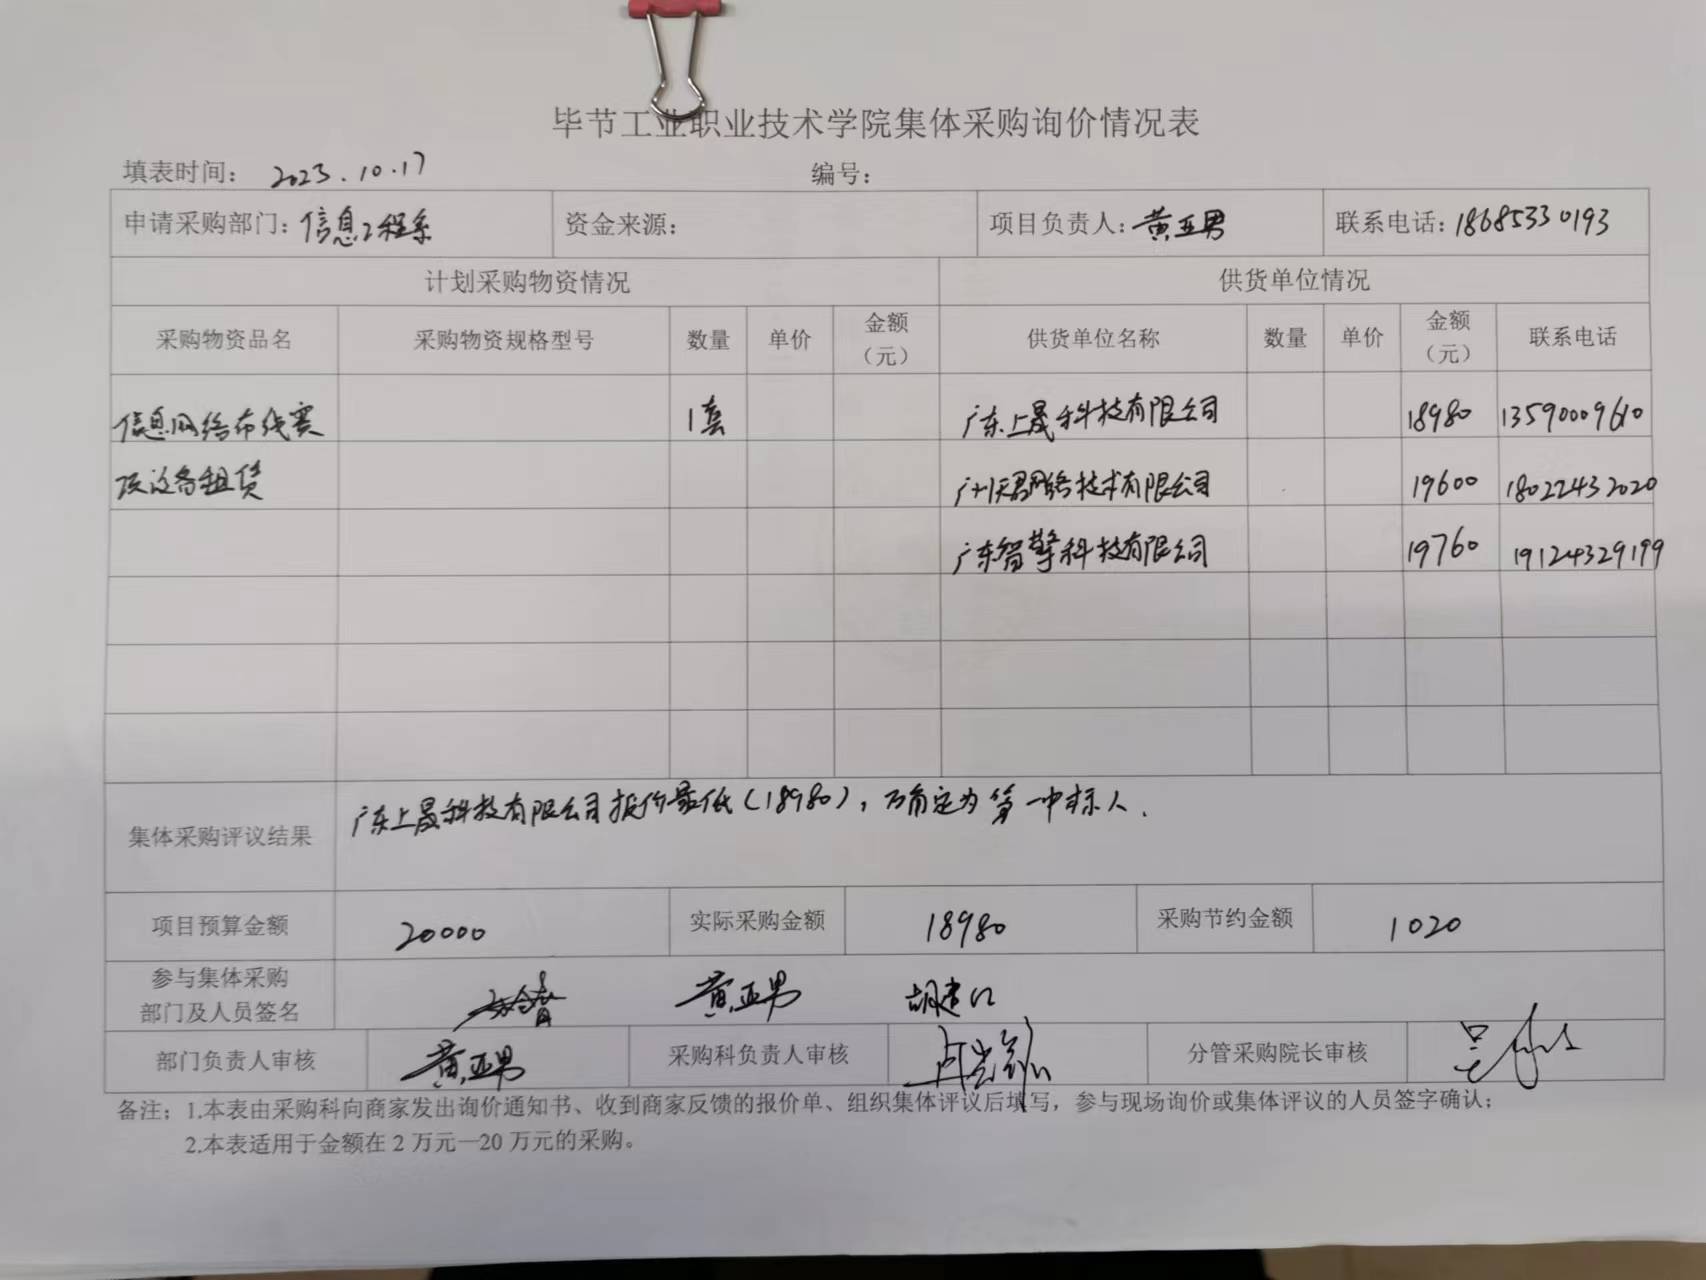 毕节工业职业技术学院集体采购询价情况表
填表时间： 2023.10.17 编号：
申请采购部门：信息工程系 资金来源： 项目负责人：黄亚男 联系电话：18685330193
计划采购物资情况 供货单位情况
采购物资品名 采购物资规格型号 数量 单价 金额（元） 供货单位名称 数量 单价 金额（元） 联系电话
信息网络布线赛 1套 广东上晟科技有限公司 18980 13590009610
项设备租赁 网络技术有限公司 19600 18022432020
广东智擎科技有限公司 19760 19124329199
集体采购评议结果 广东上晟科技有限公司报价最低（18980），确定为第一中标人.
项目预算金额 20000 实际采购金额 18980 采购节约金额 1020
参与集体采购
部门及人员签名 黄亚男 胡建
部门负责人审核 黄亚男 采购科负责人审核 分管采购院长审核
备注：1.本表由采购科向商家发出询价通知书、收到商家反馈的报价单、组织集体评议后填写，参与现场询价或集体评议的人员签字确认；
2.本表适用于金额在2万元—20万元的采购。